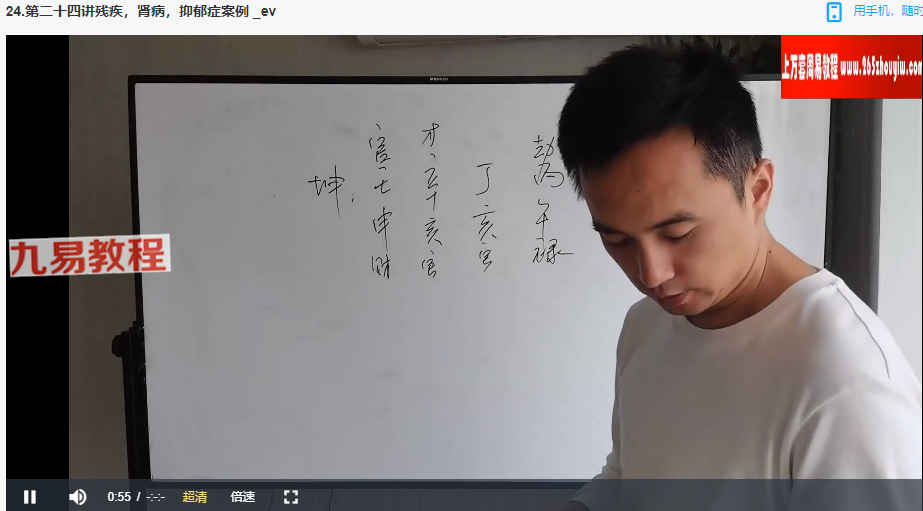 24.第二十四讲残疾，肾病，抑郁症案例 _ev
用手机、随时
上万套周易教程 www.265zhouyiw.com
九易教程
坤
官 壬 申 财
才 辛 亥 官
丁 亥 官
劫 丙 午 禄
0:55 / -:-:-
超清
倍速